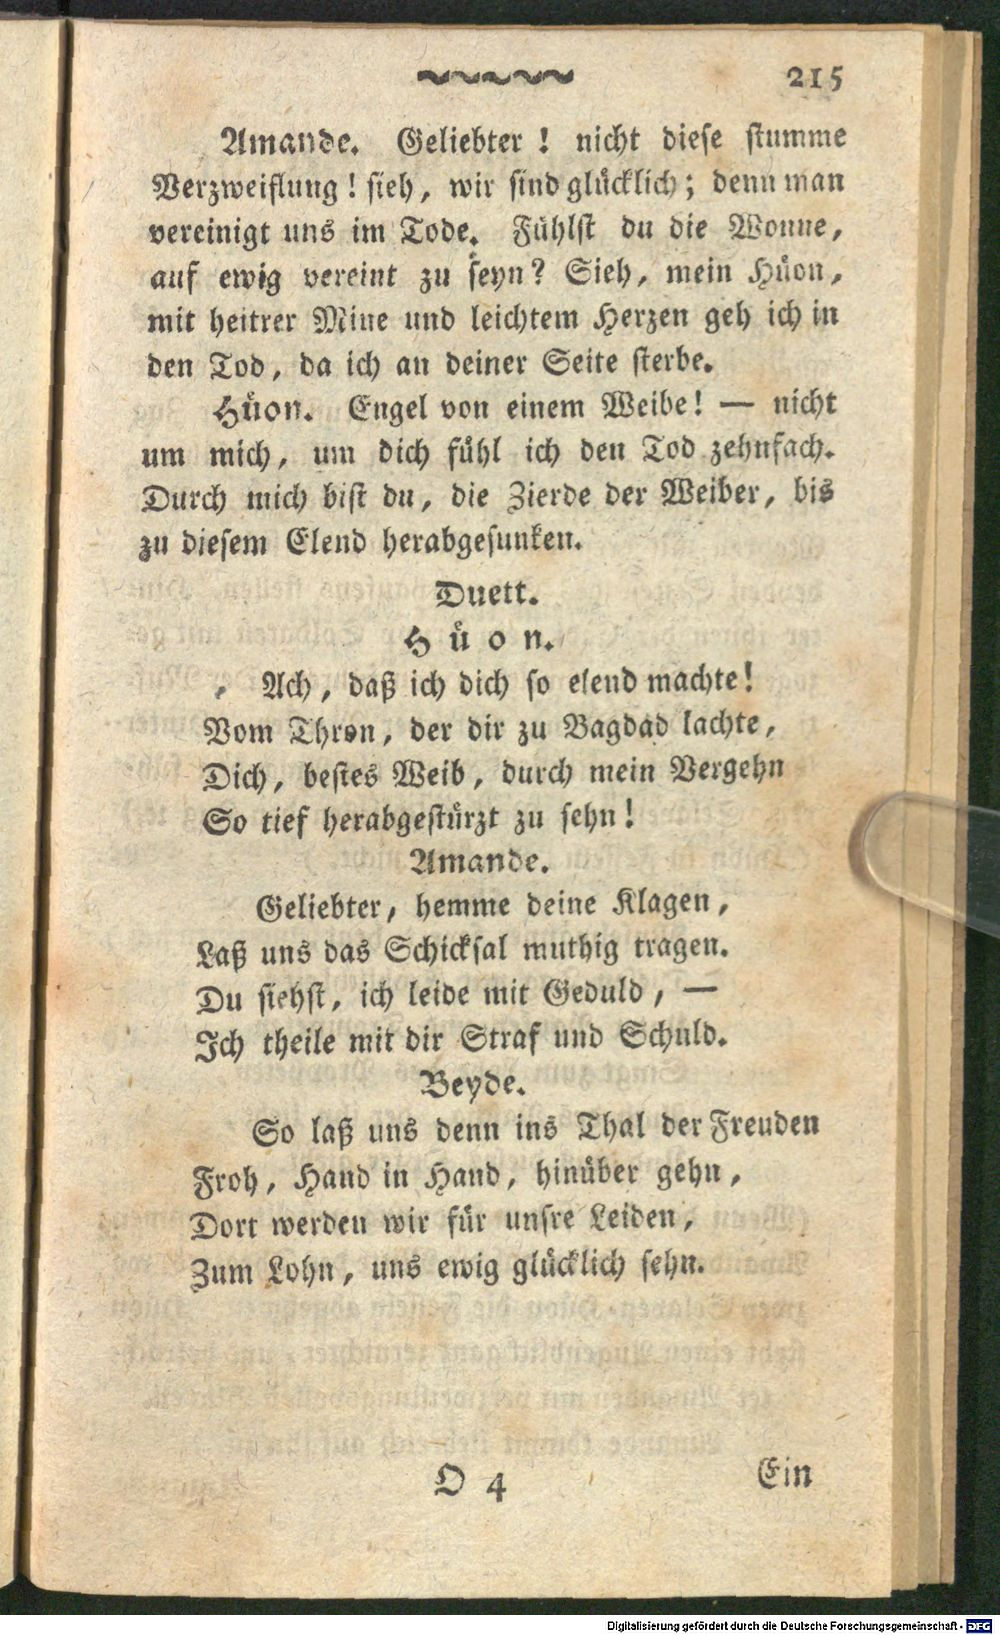 215
Amande. Geliebter! nicht diese stumme
Verzweiflung! sieh, wir sind glücklich; denn man
vereinigt uns im Tode. Fühlst du die Wonne,
auf ewig vereint zu seyn? Sieh, mein Hüon,
mit heitrer Mine und leichtem Herzen geh ich in
den Tod, da ich an deiner Seite sterbe.
Hüon. Engel von einem Weibe! — nicht
um mich, um dich fühl ich den Tod zehnfach.
Durch mich bist du, die Zierde der Weiber, bis
zu diesem Elend herabgesunken.
Duett.
Hüon.
Ach, daß ich dich so elend machte!
Vom Thron, der dir zu Bagdad lachte,
Dich, bestes Weib, durch mein Vergehn
So tief herabgestürzt zu sehn!
Amande.
Geliebter, hemme deine Klagen,
Laß uns das Schicksal muthig tragen.
Du siehst, ich leide mit Geduld, —
Ich theile mit dir Straf und Schuld.
Beyde.
So laß uns denn ins Thal der Freuden
Froh, Hand in Hand, hinüber gehn,
Dort werden wir für unsre Leiden,
Zum Lohn, uns ewig glücklich sehn.
O 4 Ein
Digitalisierung gefördert durch die Deutsche Forschungsgemeinschaft - DFG